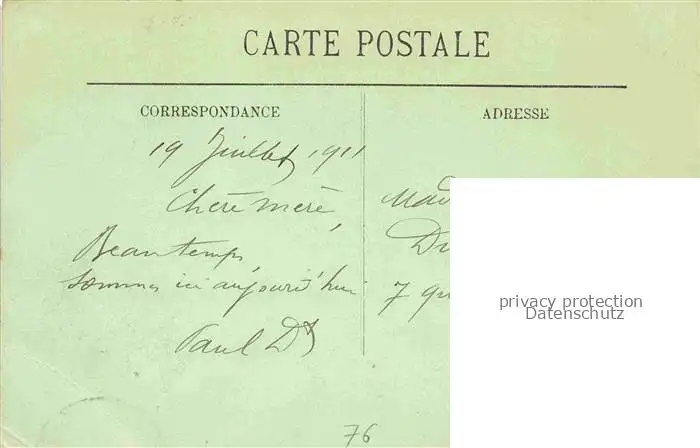 CARTE POSTALE
CORRESPONDANCE
ADRESSE
19 Juillet 1911
Chère mère,
Beau temps
sommes ici aujourd'hui
Paul
Mad
Du
7 qu
privacy protection
Datenschutz
76